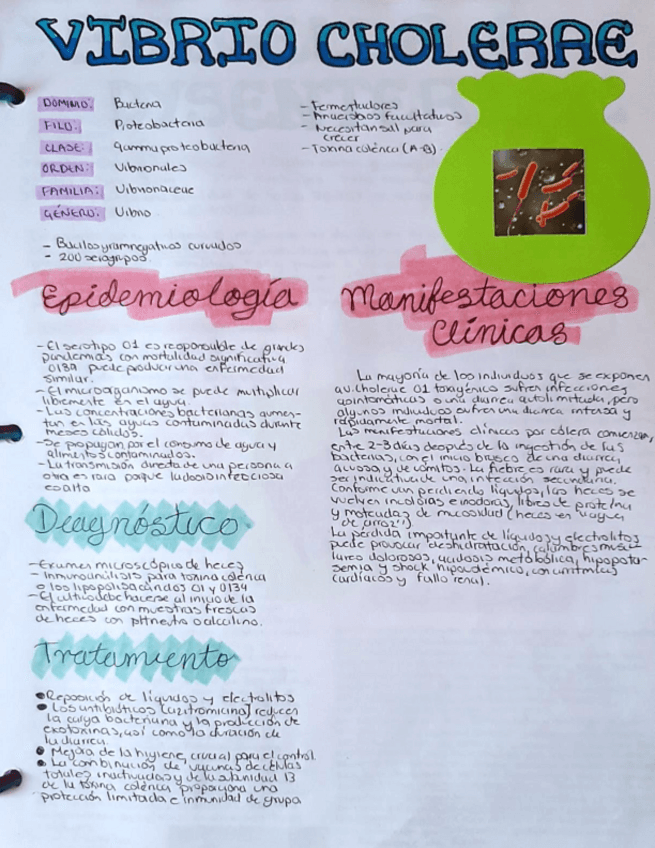 VIBRIO CHOLERAE
DOMINIO: Bacteria
FILO: Proteobacteria
CLASE: gammaproteobacteria
ORDEN: Vibrionales
FAMILIA: Vibrionaceae
GÉNERO: Vibrio
- Fermentadores
- Anaerobios facultativos
- Necesitan sal para
crecer
- Toxina colérica (A-B)
- Bacilos gramnegativos curvados
- 200 serogrupos
Epidemiología
- El serotipo 01 es responsable de grandes
pandemias con mortalidad significativa
0139 puede producir una enfermedad
similar.
- El microorganismo se puede multiplicar
libremente en el agua.
- Las concentraciones bacterianas aumen-
tan en las aguas contaminadas durante
meses cálidos.
- Se propagan por el consumo de agua y
alimentos contaminados.
- La transmisión directa de una persona a
otra es rara porque la dosis infecciosa
es alta
Diagnóstico
- Examen microscópico de heces
- Inmunoanálisis para toxina colérica
o los lipopolisacáridos 01 y 0139
- El cultivo debe hacerse al inicio de la
enfermedad con muestras frescas
de heces con pH neutro o alcalino.
Tratamiento
● Reposición de líquidos y electrolitos
● Los antibióticos (azitromicina) reducen
la carga bacteriana y la producción de
exotoxinas, así como la duración de
la diarrea.
● Mejora de la higiene, crucial para el control
● La combinación de vacunas de células
totales inactivadas y de la subunidad B
de la toxina colérica proporciona una
protección limitada e inmunidad de grupo
Manifestaciones
Clínicas
La mayoría de los individuos que se exponen
a V. Cholerae 01 toxigénico sufren infecciones
asintomáticas o una diarrea autolimitada, pero
algunos individuos sufren una diarrea intensa y
rápidamente mortal.
Las manifestaciones clínicas del cólera comienzan,
entre 2-3 días después de la ingestión de las
bacterias, con el inicio brusco de una diarrea
acuosa y de vómitos. La fiebre es rara y puede
ser indicativa de una infección secundaria.
Conforme van perdiendo líquidos, las heces se
vuelven incoloras e inodoras, libres de proteína
y moteadas de mucosidad (heces en "agua
de arroz")
La pérdida importante de líquidos y electrolitos
puede provocar deshidratación, calambres muscu-
lares dolorosos, acidosis metabólica, hipopota-
semia y shock hipovolémico, con arritmias
cardíacas y fallo renal.